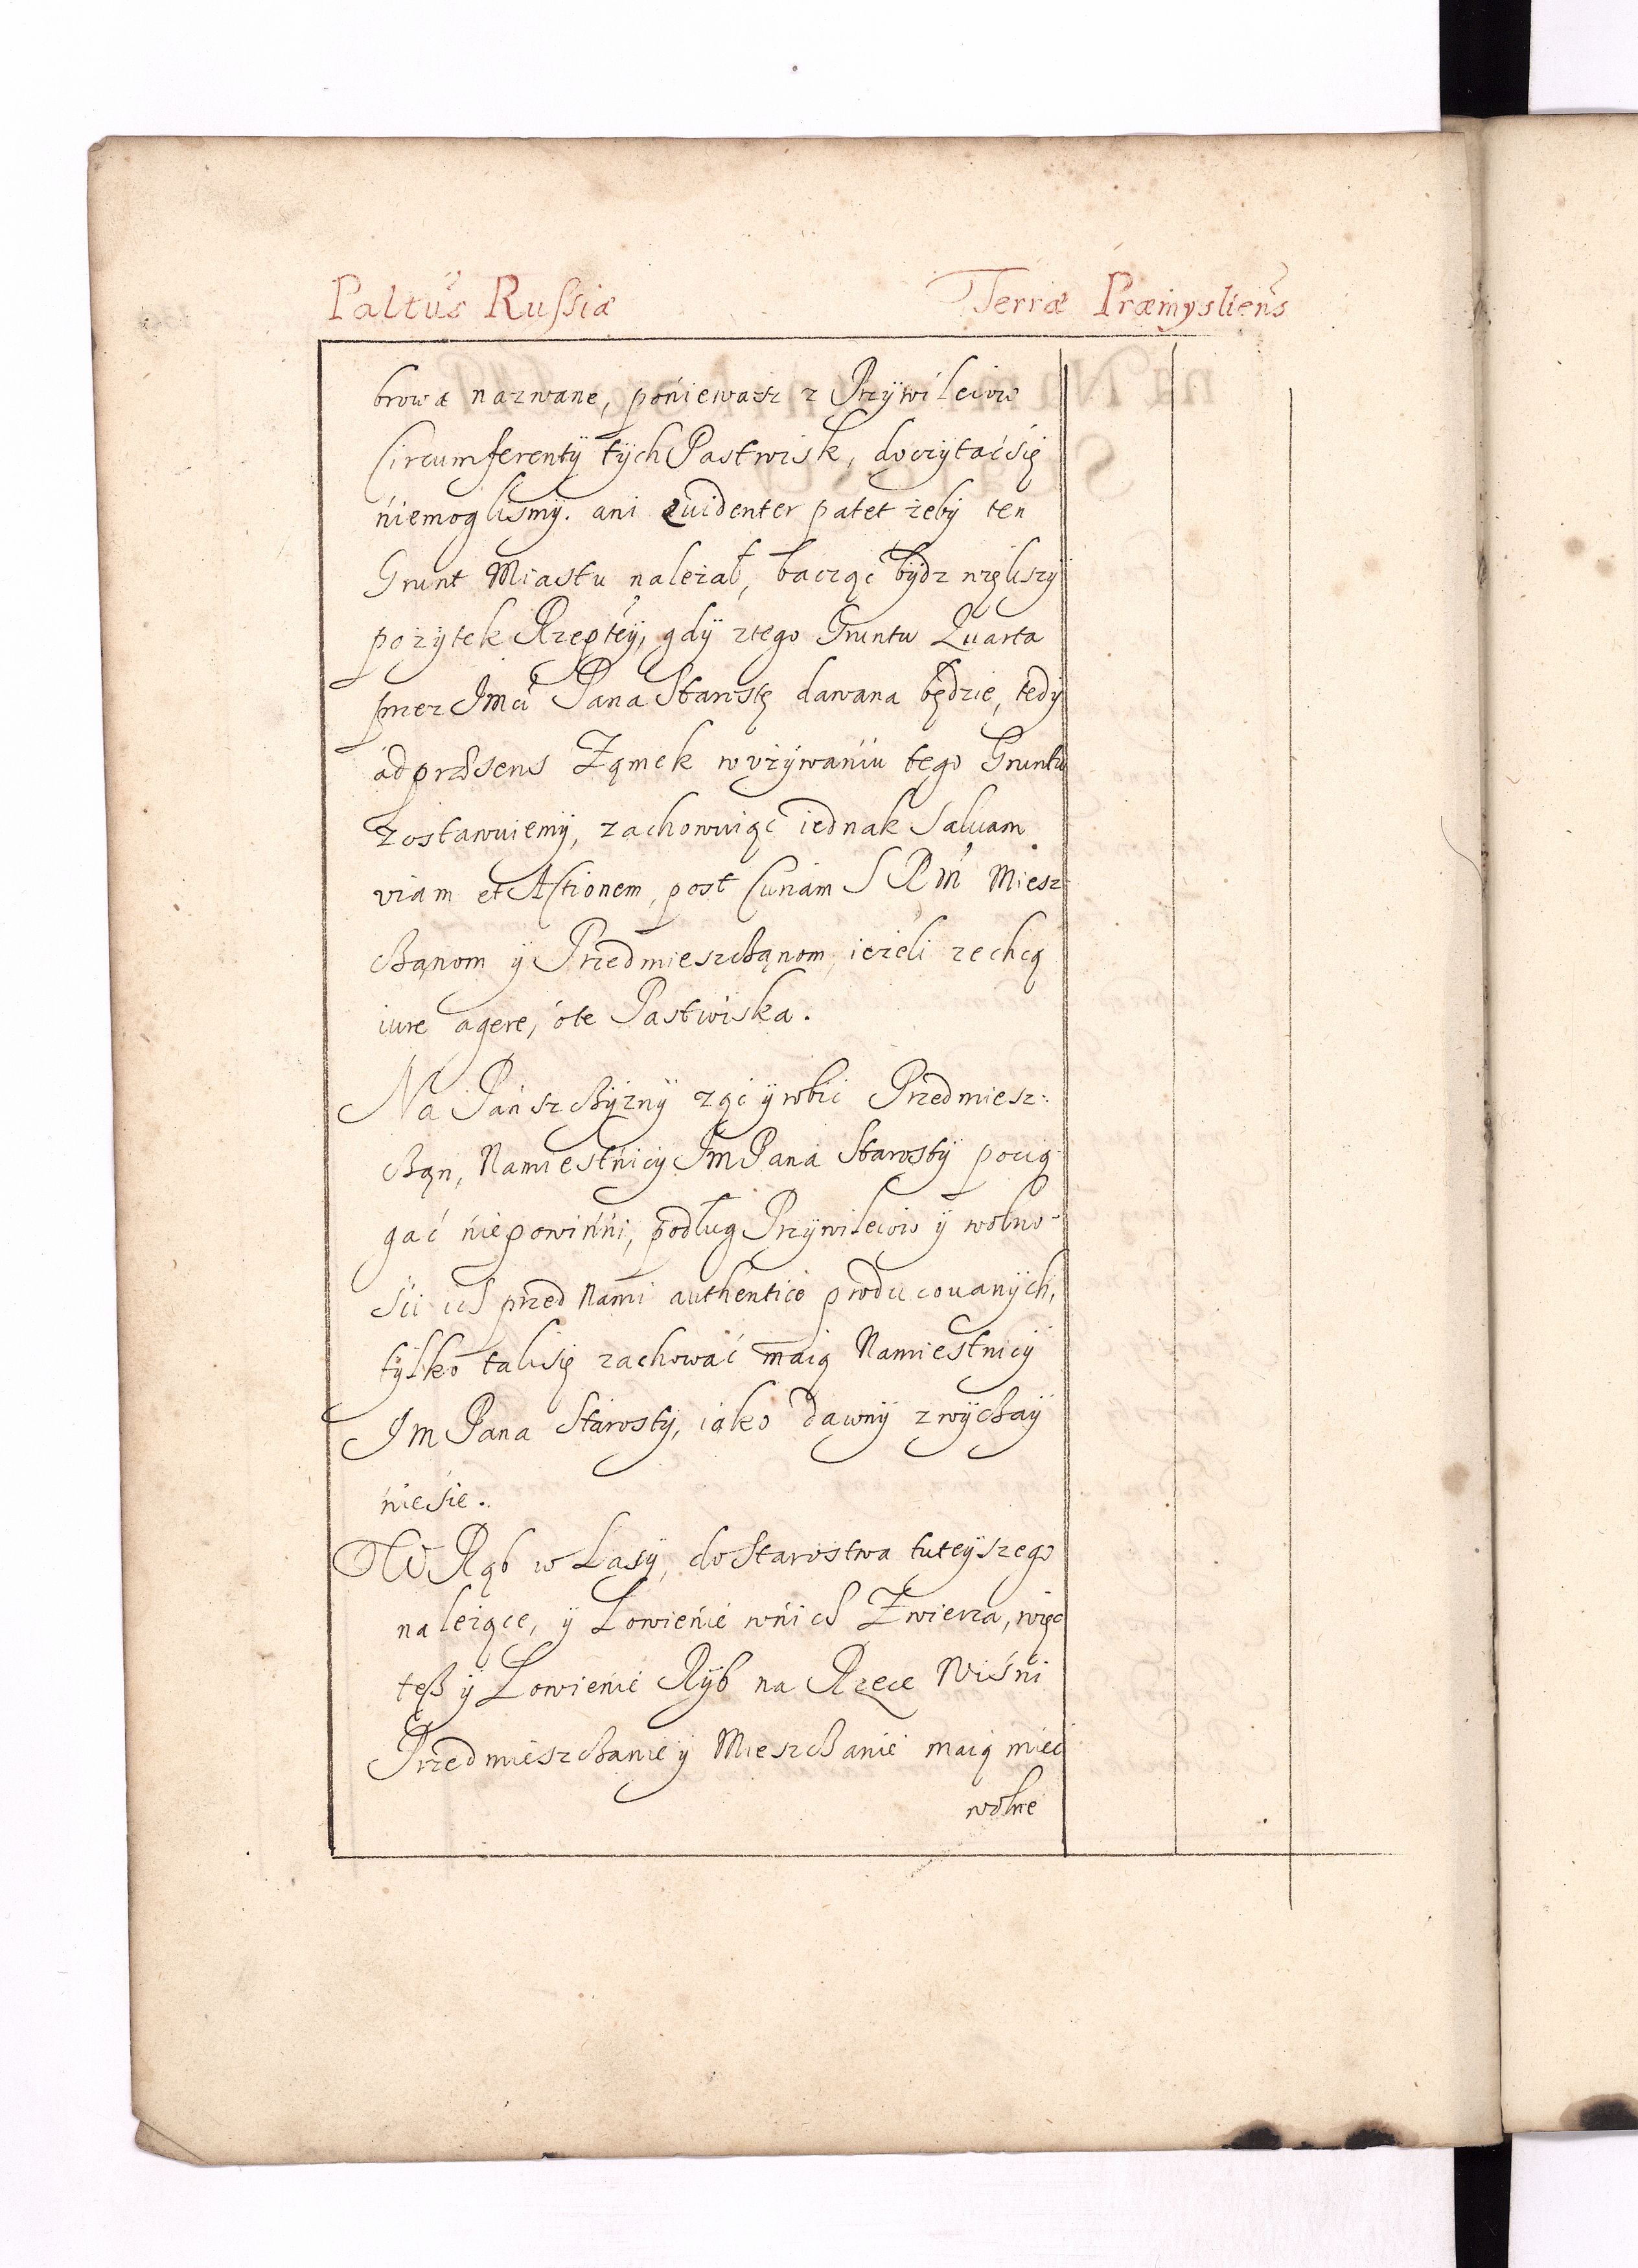 Paltus Russiæ Terræ Præmysliens
browa nazwane, poniewasz z Przywileiow
Circumferenty tych Pastwisk, doczytać się
niemoglismy. ani Evidenter patet żeby ten
Grunt Miastu należał, bacząc bydz większy
pożytek Rzeptey, gdy ztego Gruntu Quarta
przez Jmci Pana Starostę dawana będzie, tedy
ad præsens Zamek wużywaniu tego Gruntu
zostawuiemy, zachowuiąc iednak Saluam
viam et Actionem, post Curiam S R M Miesz-
czanom y Przedmieszczanom, ieżeli zechcą
iure agere, ote Pastwiska.
Na Panszczyzny ząc y robic Przedmiesz:
czan, Namiestnicy Jm Pana Starosty pocią-
gać niepowinni, podług Przywileiow y wolno-
ści ich przed Nami authentice producowanych,
tylko taksię zachować maią Namiestnicy
Jm Pana Starosty, iako dawny zwyczay
niesie.
W Rąb w Lasy, do Starostwa tuteyszego
należące, y Łowienie wnich Zwierza, więc
tesz y Łowienie Ryb na Rzece Wiśni
Przedmieszczanie y Mieszczanie maią mieć
wolne